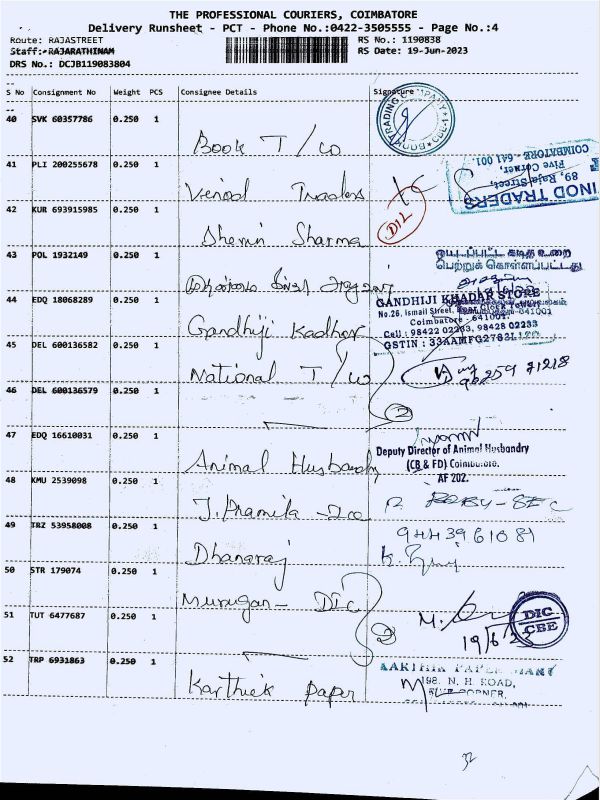 THE PROFESSIONAL COURIERS, COIMBATORE
Delivery Runsheet - PCT - Phone No.:0422-3505555 - Page No.:4
Route: RAJASTREET
RS No.: 1190838
Staff:-RAJARATHINAM
RS Date: 19-Jun-2023
DRS No.: DCJB119083804
S No Consignment No Weight PCS Consignee Details Signature
40 SVK 60357786 0.250 1
Book T/co
BOOK TRADING COMPANY CBE-1
41 PLI 200255678 0.250 1
Vinod Traders
VINOD TRADERS
89, Raja Street,
Five Corner,
COIMBATORE - 641 001.
42 KUR 693915985 0.250 1
Sharma
D12
43 POL 1932149 0.250 1
ஒட்டப்பட்ட கடித உறை
பெற்றுக் கொள்ளப்பட்டது
44 EDQ 18068289 0.250 1
Gandhiji Kadhar
GANDHIJI KHADAR STORE
No.26, Ismail Street, Near Clock Tower,
Coimbatore - 641001.
Cell : 98422 02233, 98428 02233
GSTIN :
45 DEL 600136582 0.250 1
National T/co
98259 71218
46 DEL 600136579 0.250 1
2
47 EDQ 16610031 0.250 1
Animal Husbandry
Deputy Director of Animal Husbandry
(CB & FD) Coimbatore.
AF 202.
48 KMU 2539098 0.250 1
J. Pramila
49 TRZ 53958008 0.250 1
Dhanaraj
9443961081
50 STR 179074 0.250 1
Murugan - DIC
DIC
CBE
51 TUT 6477687 0.250 1
2
19/6/23
52 TRP 6931863 0.250 1
Karthick paper
KARTHIK PAPER MART
198, N. H. ROAD,
FIVE CORNER,
32